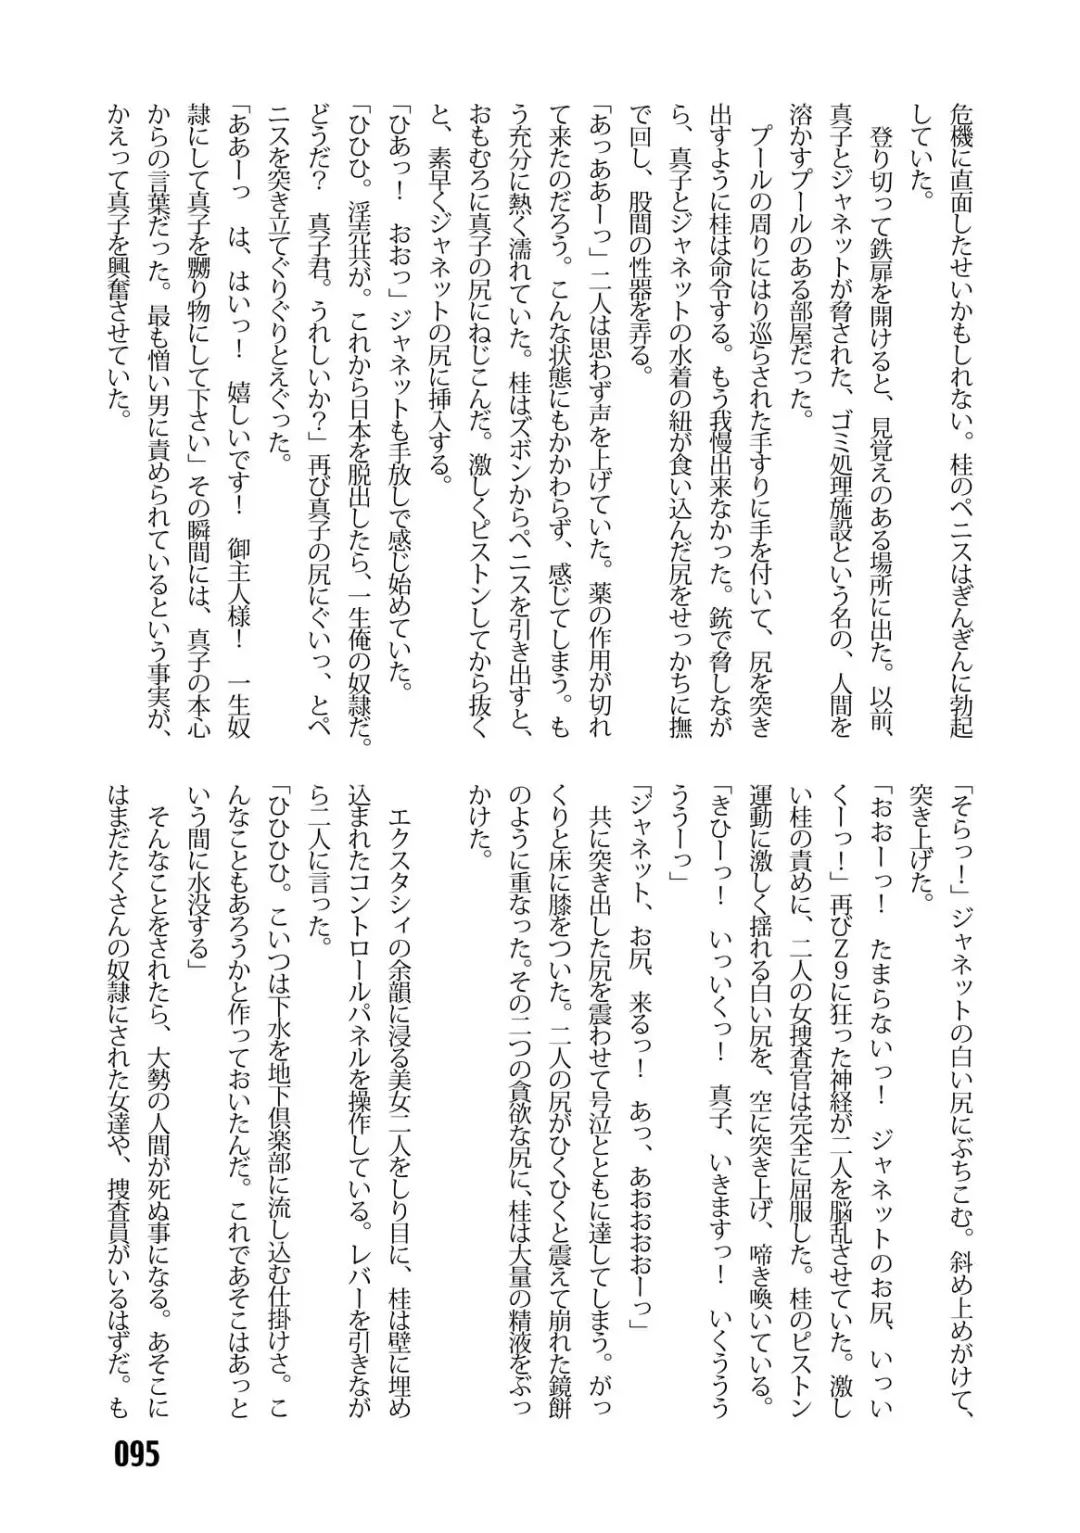 危機に直面したせいかもしれない。桂のペニスはぎんぎんに勃起
していた。
登り切って鉄扉を開けると、見覚えのある場所に出た。以前、
真子とジャネットが脅された、ゴミ処理施設という名の、人間を
溶かすプールのある部屋だった。
プールの周りにはり巡らされた手すりに手を付いて、尻を突き
出すように桂は命令する。もう我慢出来なかった。銃で脅しなが
ら、真子とジャネットの水着の紐が食い込んだ尻をせっかちに撫
で回し、股間の性器を弄る。
「あっああーっ」二人は思わず声を上げていた。薬の作用が切れ
て来たのだろう。こんな状態にもかかわらず、感じてしまう。も
う充分に熱く濡れていた。桂はズボンからペニスを引き出すと、
おもむろに真子の尻にねじこんだ。激しくピストンしてから抜く
と、素早くジャネットの尻に挿入する。
「ひあっ！　おおっ」ジャネットも手放しで感じ始めていた。
「ひひひ。淫売共が。これから日本を脱出したら、一生俺の奴隷だ。
どうだ？　真子君。うれしいか？」再び真子の尻にぐいっ、とペ
ニスを突き立てぐりぐりとえぐった。
「ああーっ　は、はいっ！　嬉しいです！　御主人様！　一生奴
隷にして真子を嬲り物にして下さい」その瞬間には、真子の本心
からの言葉だった。最も憎い男に責められているという事実が、
かえって真子を興奮させていた。
「そらっ！」ジャネットの白い尻にぶちこむ。斜め上めがけて、
突き上げた。
「おおーっ！　たまらないっ！　ジャネットのお尻、いっい
くーっ！」再びＺ９に狂った神経が二人を脳乱させていた。激し
い桂の責めに、二人の女捜査官は完全に屈服した。桂のピストン
運動に激しく揺れる白い尻を、空に突き上げ、啼き喚いている。
「きひーっ！　いっいくっ！　真子、いきますっ！　いくううう
ううーっ」
「ジャネット、お尻、来るっ！　あっ、あおおおおーっ」
共に突き出した尻を震わせて号泣とともに達してしまう。がっ
くりと床に膝をついた。二人の尻がひくひくと震えて崩れた鏡餅
のように重なった。その二つの貪欲な尻に、桂は大量の精液をぶっ
かけた。
エクスタシィの余韻に浸る美女二人をしり目に、桂は壁に埋め
込まれたコントロールパネルを操作している。レバーを引きなが
ら二人に言った。
「ひひひひ。こいつは下水を地下倶楽部に流し込む仕掛けさ。こ
んなこともあろうかと作っておいたんだ。これであそこはあっと
いう間に水没する」
そんなことをされたら、大勢の人間が死ぬ事になる。あそこに
はまだたくさんの奴隷にされた女達や、捜査員がいるはずだ。も
095